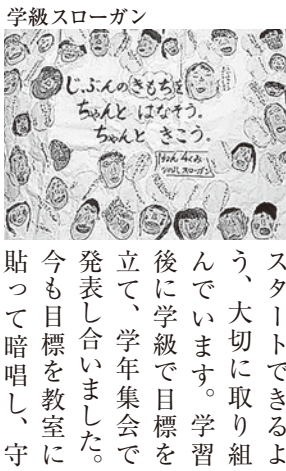 学級スローガン
じぶんのきもちを
ちゃんと はなそう。
ちゃんと きこう。
スタートできるよ
う、大切に取り組
んでいます。学習
後に学級で目標を
立て、学年集会で
発表し合いました。
今も目標を教室に
貼って暗唱し、守